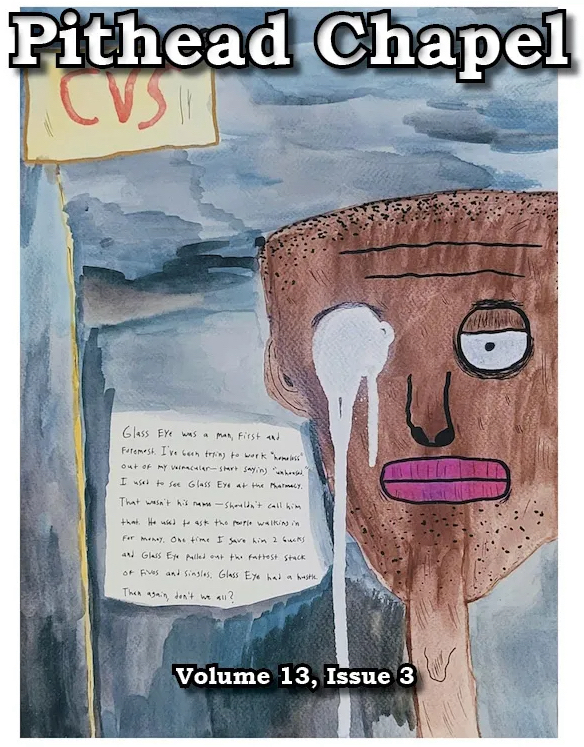 Pithead Chapel
CVS
Glass Eye was a man, first and
foremost. I've been trying to work "homeless"
out of my vernacular—start saying "unhoused."
I used to see Glass Eye at the Pharmacy.
That wasn't his name—shouldn't call him
that. He used to ask the people walking in
for money. One time I gave him 2 bucks
and Glass Eye pulled out the fattest stack
of fives and singles. Glass Eye had a hustle.
Then again, don't we all?
Volume 13, Issue 3